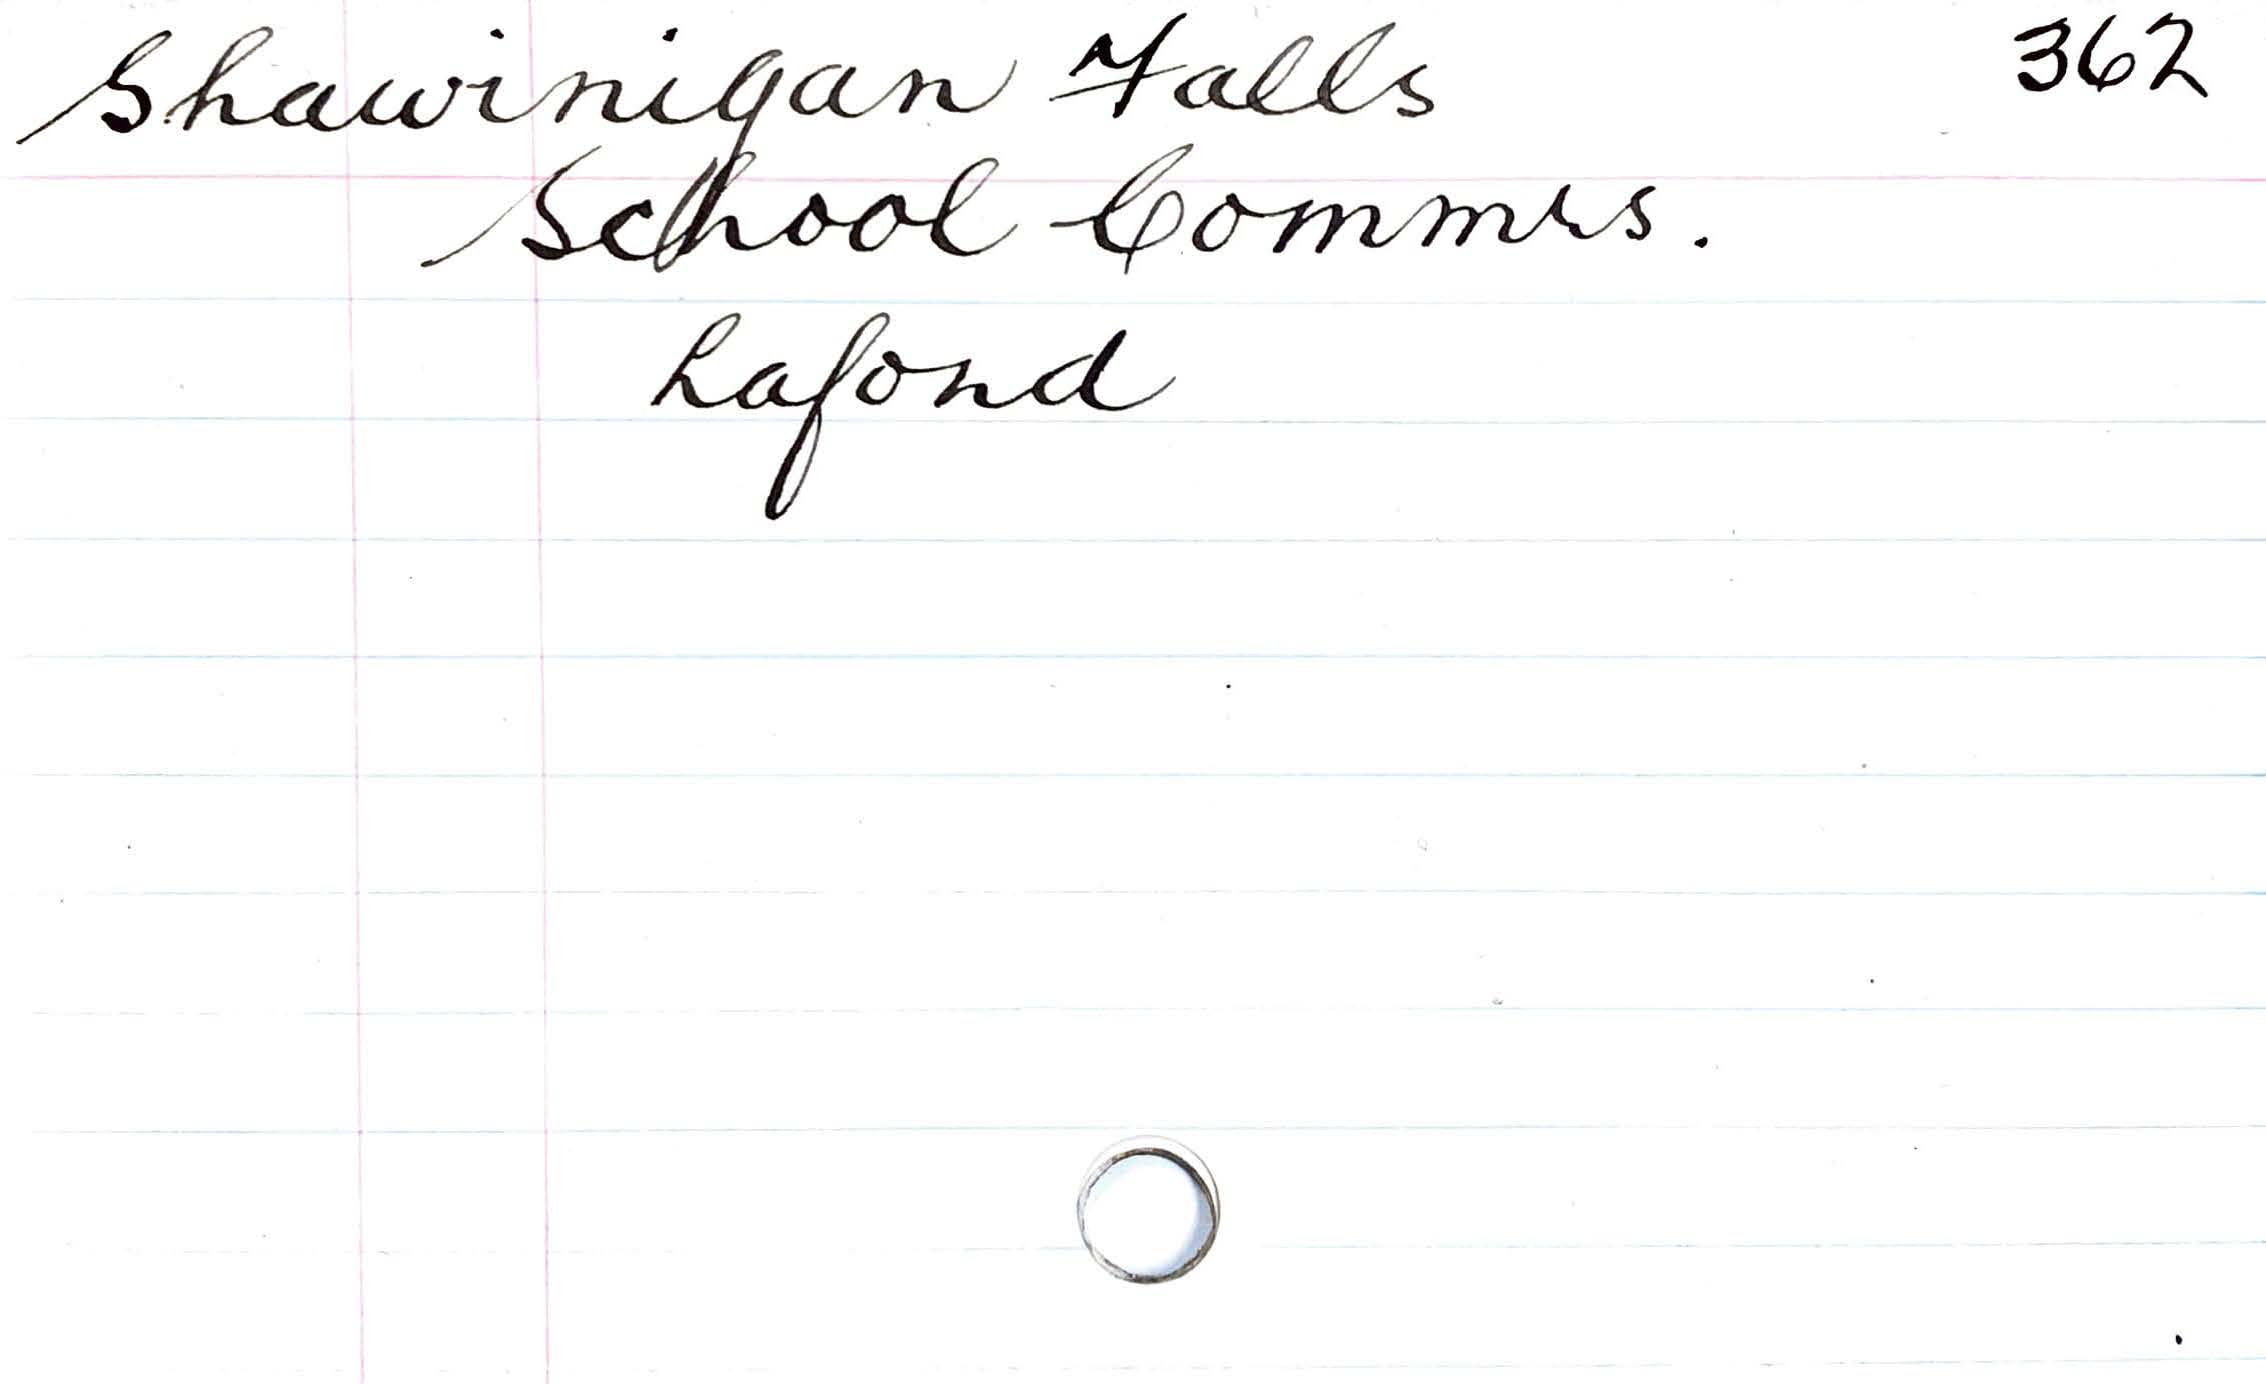 Shawinigan Falls 362
School Commrs.
Lafond